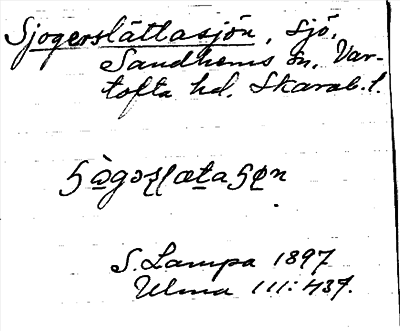 Sjogerslättasjön, Sjö,
Sandhems sn, Var-
tofta hd. Skarab. l.
S. Lampa 1897
Ulma 111:437.